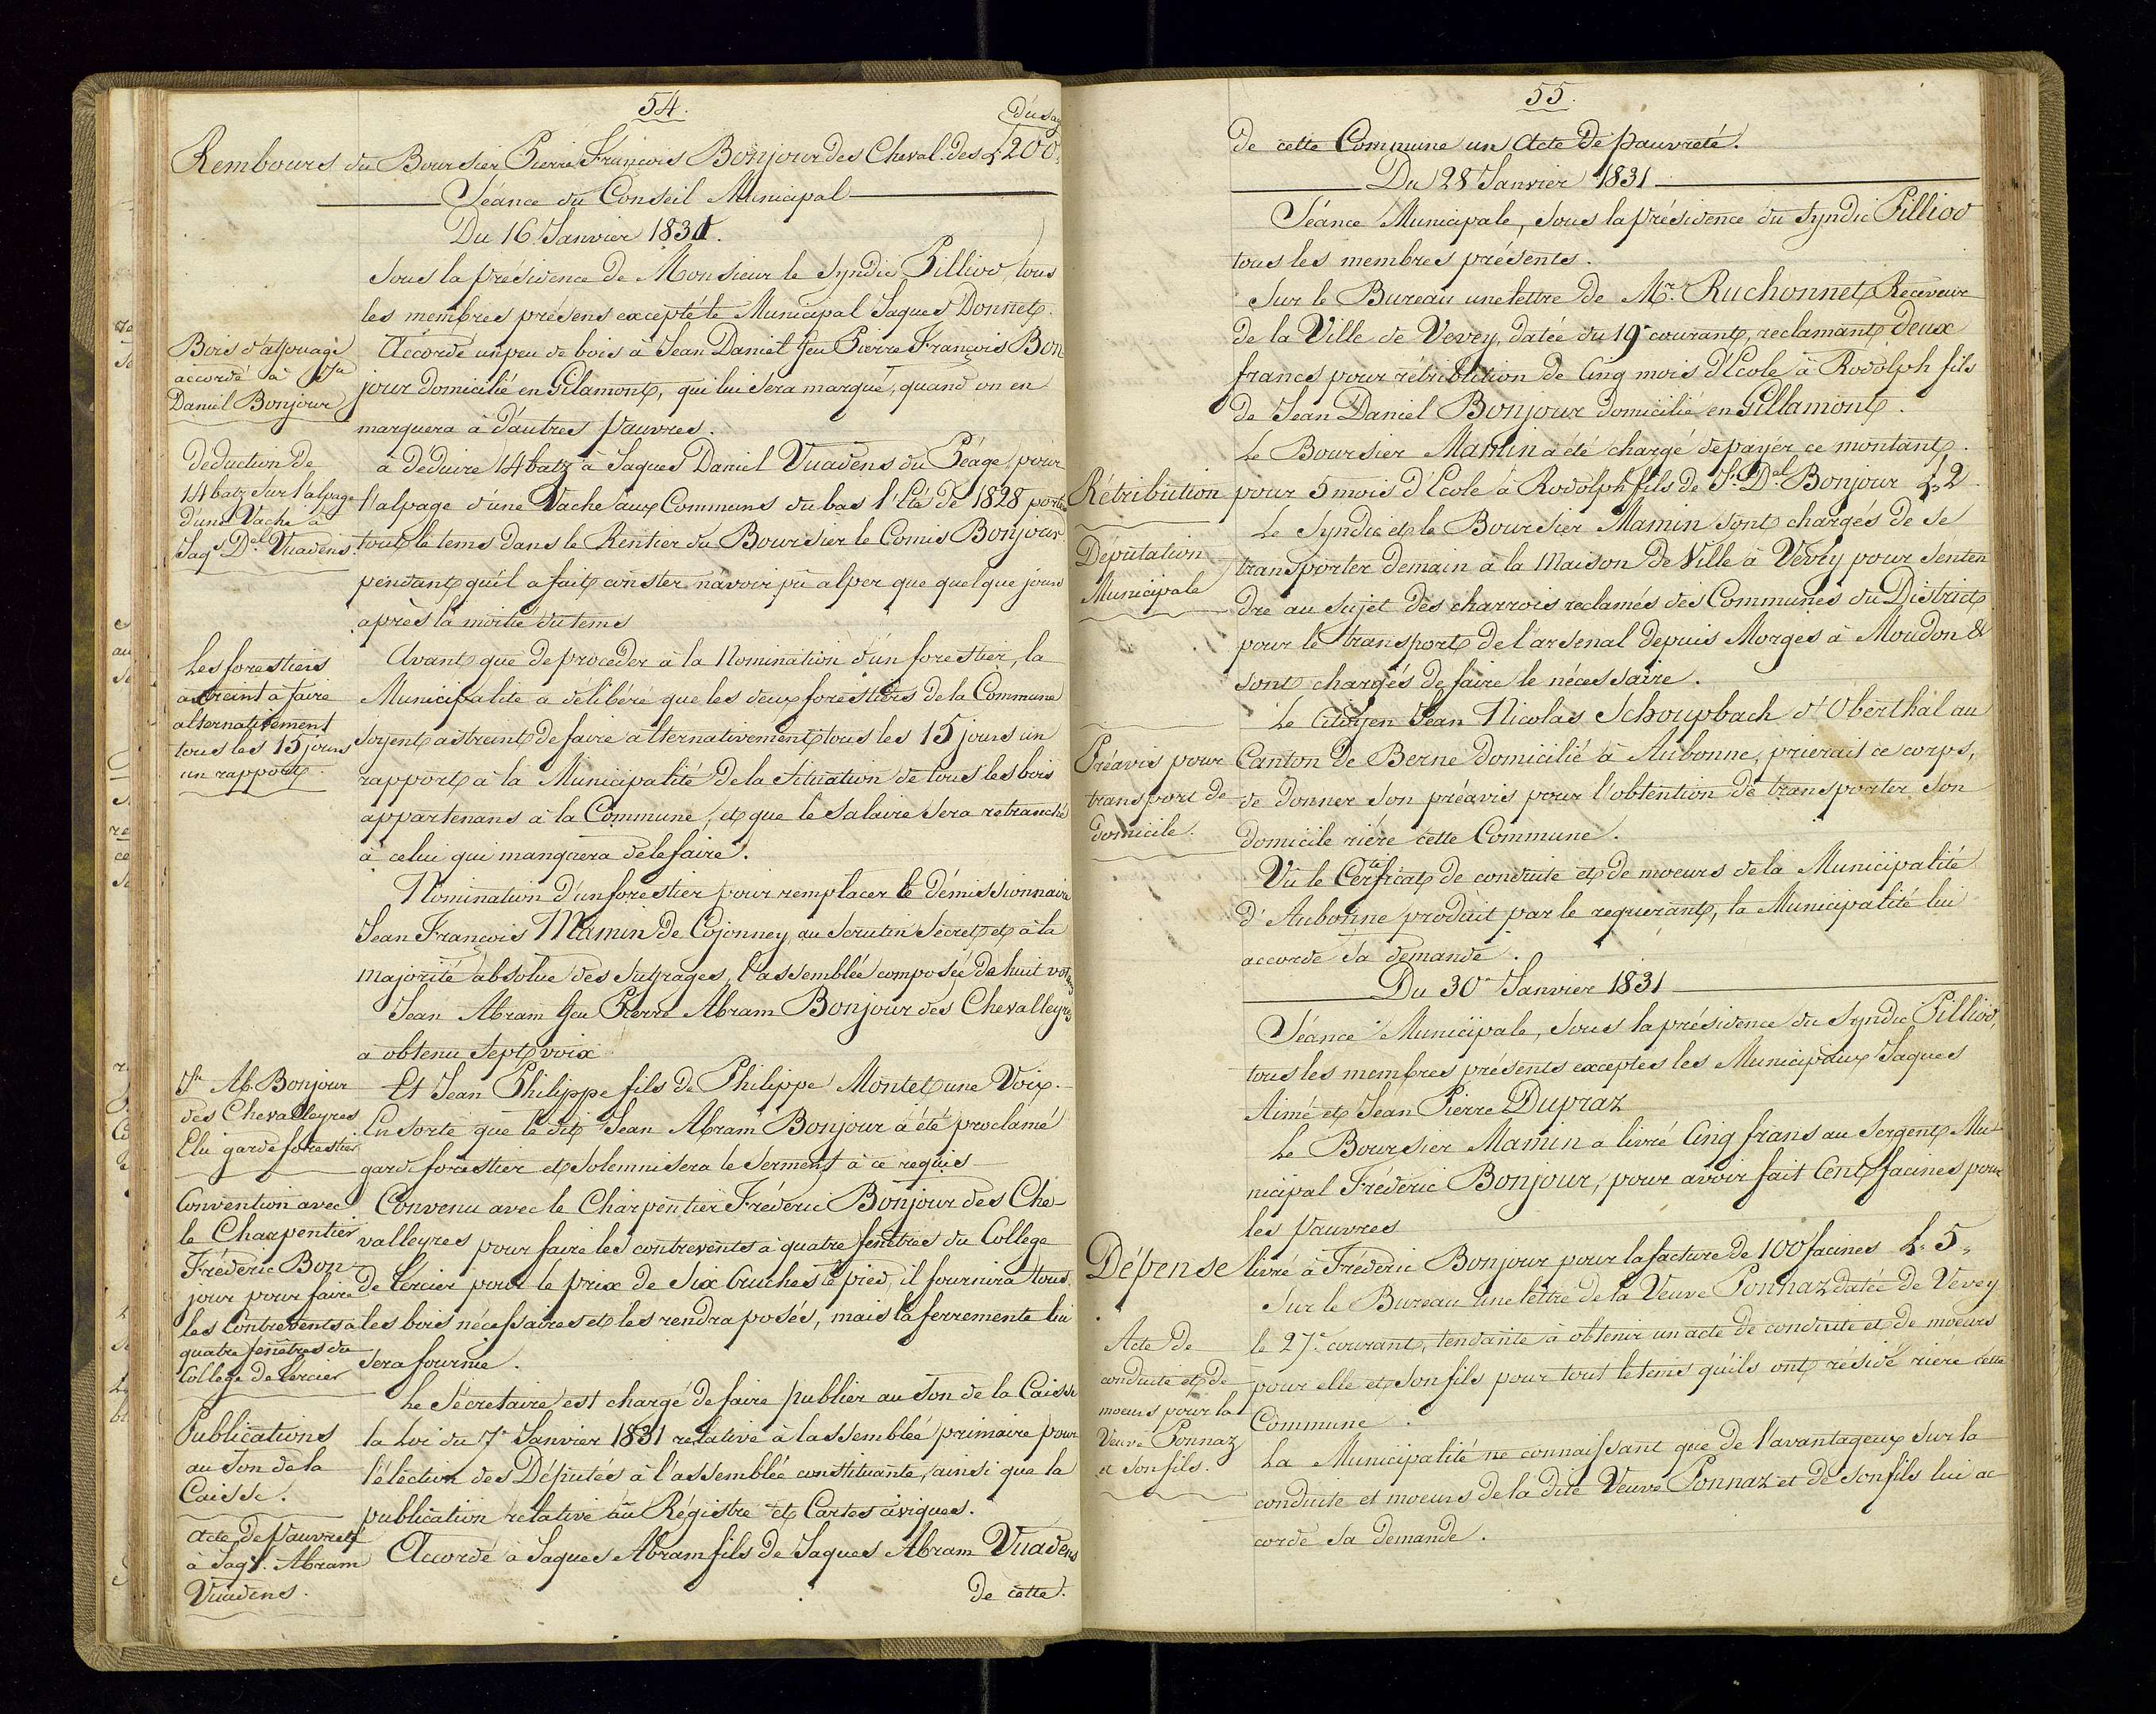 54.
Rembours du Boursier Pierre François Bonjour des Cheval. des £200
Séance du Conseil Municipal
Du 16 Janvier 1831.
Sous la présidence de Monsieur le Syndic Pilliod, tous
les membres présens excepté le Municipal Jaques Donnet.
Bois d'afouage
accordé à Jn
Daniel Bonjour
Accordé un peu de bois à Jean Daniel feu Pierre François Bon
jour domicilié en Gilamont, qui lui sera marqué, quand on en
marquera à d'autres Pauvres.
deduction de
14 batz sur l'alpage
d'une Vache à
Jaqs Del Vuadens
à deduire 14 batz à Jaques Daniel Vuadens du Péage, pour
l'alpage d'une Vache aux Communs du bas l'Eté de 1828 porté
tout le tems dans le Rentier du Boursier le Comis Bonjour
pendant qu'il a fait conster n'avoir pû alper que quelque jours
après la moitié du tems
Les forestiers
astreint à faire
alternativement
tous les 15 jours
un rapport.
Avant que de proceder à la Nomination d'un forestier, la
Municipalité a délibéré que les deux forestiers de la Commune
soyent astreint de faire alternativement tous les 15 jours un
rapport à la Municipalité de la situation de tous les bois
appartenans à la Commune, et que le salaire sera retranché
à celui qui manquera de le faire.
Nomination d'un forestier pour remplacer le démissionnaire
Jean François Mamin de Cojonney, au Scrutin Sécret et à la
majorité absolue des sufrages, l'assemblée composée de huit votans
Jean Abram feu Pierre Abram Bonjour des Chevalleyres
a obtenu sept voix
Jn Ab. Bonjour
des Chevalleyres
Elu garde forestier
Et Jean Philippe fils de Philippe Montet une Voix.
En sorte que le dit Jean Abram Bonjour a été proclamé
garde forestier et solemnisera le serment à ce requis
Convention avec
le Charpentier
Fréderic Bon-
jour pour faire
les Contrevents a
quatre fenêtres du
College de Cercier
Convenu avec le Charpentier Fréderic Bonjour des Che-
valleyres pour faire les contrevents à quatre fenêtres du College
de Cercier pour le prix de Six Cruches le pied, il fournira tous
les bois nécessaires et les rendra posés, mais la ferremente lui
sera fournie.
Publications
au Son de la
Caisse.
Le Sécretaire est chargé de faire publier au Son de la Caisse
la Loi du 7e Janvier 1831 relative à l'assemblée primaire pour
l'élection des Députés à l'assemblée constituante, ainsi que la
publication relative au Régistre et Cartes civiques.
Acte de Pauvreté
à Jaqs. Abram
Vuadens.
Accordé à Jaques Abram fils de Jaques Abram Vuadens
de cette.
55.
de cette Commune un Acte de pauvreté.
Du 28 Janvier 1831
Séance Municipale, sous la présidence du Syndic Pilliod
tous les membres présents.
Sur le Bureau une lettre de Mr. Ruchonnet Receveur
de la Ville de Vevey, datée du 19e courant, reclamant deux
francs pour rétribution de Cinq mois d'Ecole à Rodolph fils
de Jean Daniel Bonjour domicilié en Gillamont.
Le Boursier Mamin a été chargé de payer ce montant.
Rétribution pour 5 mois d'Ecole à Rodolph fils de Jn. Del Bonjour £ 2
Députation
Municipale
Le Syndic et le Boursier Mamin sont chargés de se
transporter demain à la Maison de Ville à Vevey pour s'enten
dre au sujet des charrois reclamés des Communes du District
pour le transport de l'arsenal depuis Morges à Moudon &
sont chargés de faire le nécessaire.
Préavis pour
transport de
domicile.
Le Citoyen Jean Nicolas Schoupbach d'Oberthal au
Canton de Berne domicilié à Aubonne, prierait ce corps,
de donner son préavis pour l'obtention de transporter son
domicile riére cette Commune.
Vu le Certificat de conduite et de moeurs de la Municipalité
d'Aubonne produit par le requerant, la Municipalité lui
accorde sa demande.
Du 30e Janvier 1831
Séance Municipale, sous la présidence du Syndic Pilliod,
tous les membres présents exceptes les Municipaux Jaques
Aimé et Jean Pierre Dupraz
Le Boursier Mamin a livré Cinq frans au Sergent Mu-
nicipal Fréderic Bonjour, pour avoir fait Cent facines pour
les Pauvres
Dépense livré à Fréderic Bonjour pour la facture de 100 facines £. 5
Acte de
conduite et de
moeurs pour la
Veuve Ponnaz
et son fils.
Sur le Bureau une lettre de la Veuve Ponnaz datée de Vevey
le 27e. courant, tendante à obtenir un acte de conduite et de moeurs
pour elle et son fils pour tout le tems qu'ils ont résidé rière cette
Commune.
La Municipalité ne connaissant que de l'avantageux sur la
conduite et moeurs de la dite Veuve Ponnaz et de son fils lui ac
corde sa demande.